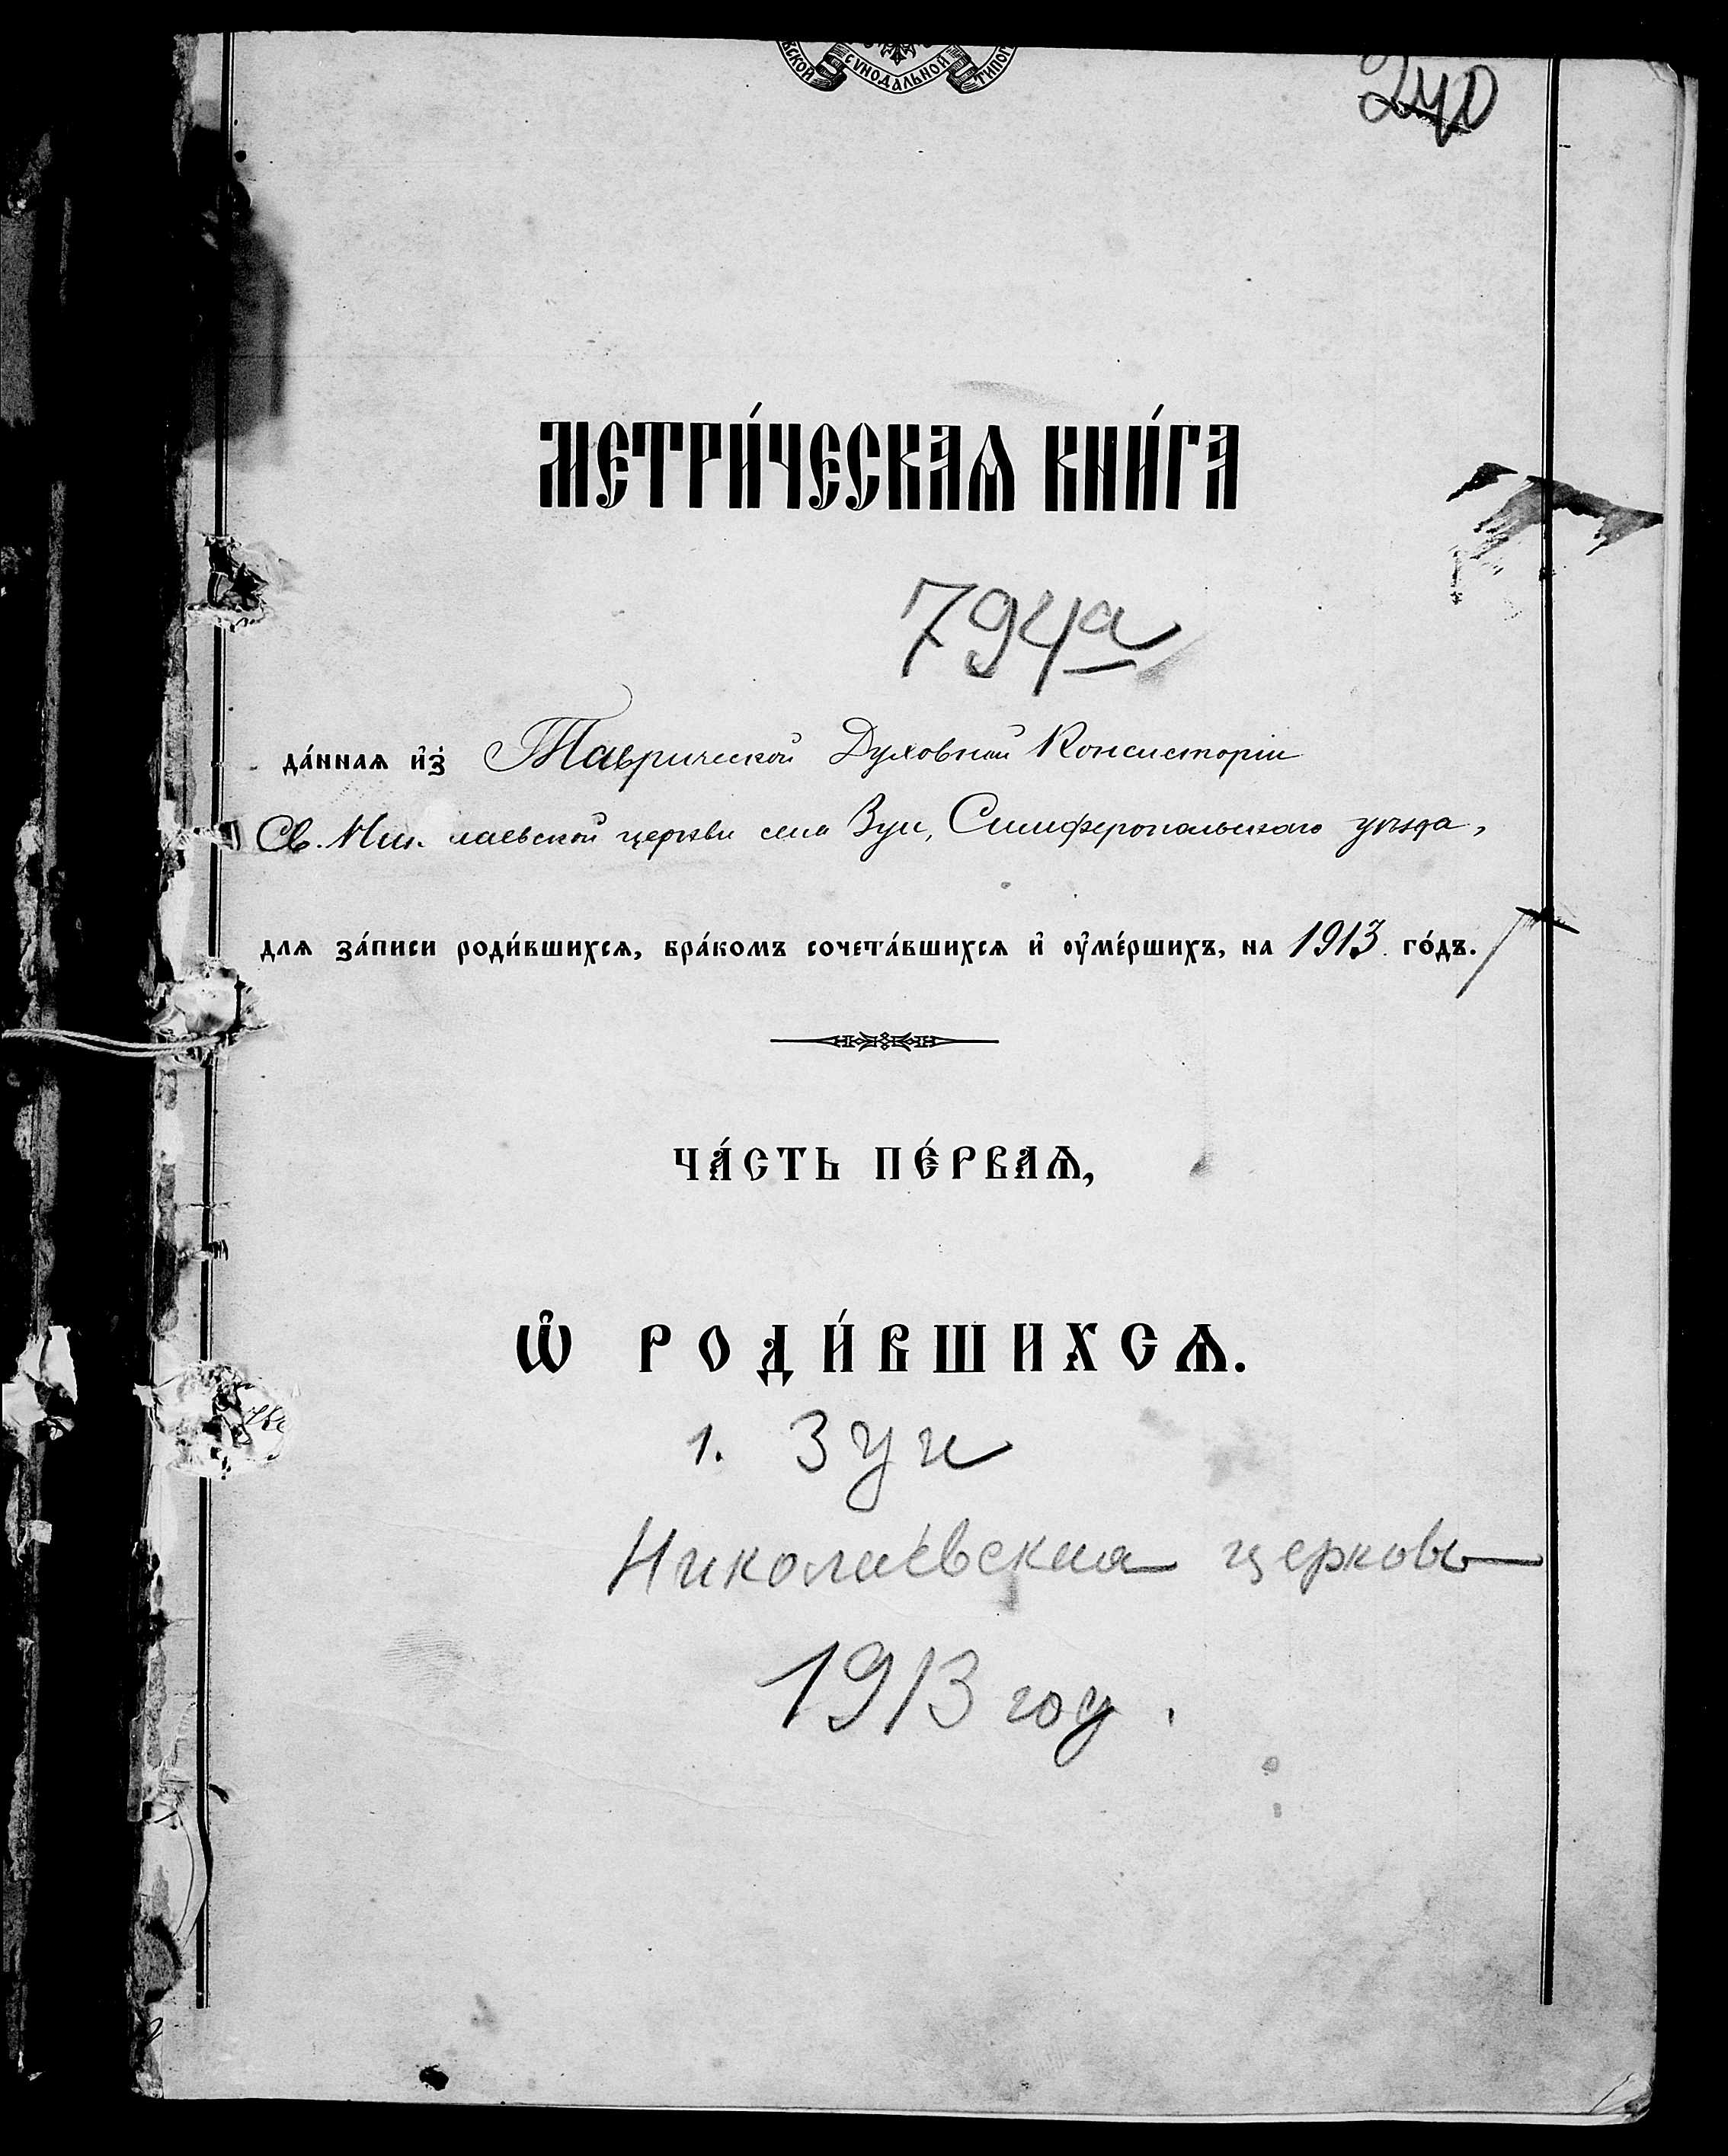 СУНОДАЛЬНОЙ
240
МЕТРИ́ЧЕСКАѦ КНИ́ГА
794а
да́ннаѧ и҆з̾ Таврической Духовной Консисторіи
Св. Ник лаевской церкви села Зуи, Симферопольскаго уѣзда,
для за́писи роди́вшихсѧ, бра́комъ сочета́вшихсѧ и҆ оу҆ме́ршихъ, на 1913 го́дъ.
ЧА́СТЬ ПЕ́РВАѦ,
Ѡ҆ РОДИ́ВШИХСѦ.
1. Зуи
Николаевская церковь
1913 год.